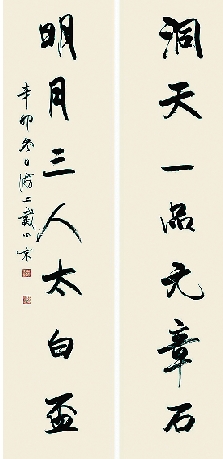 洞天一品元章石
明月三人太白盃
辛卯冬日海上戴小京